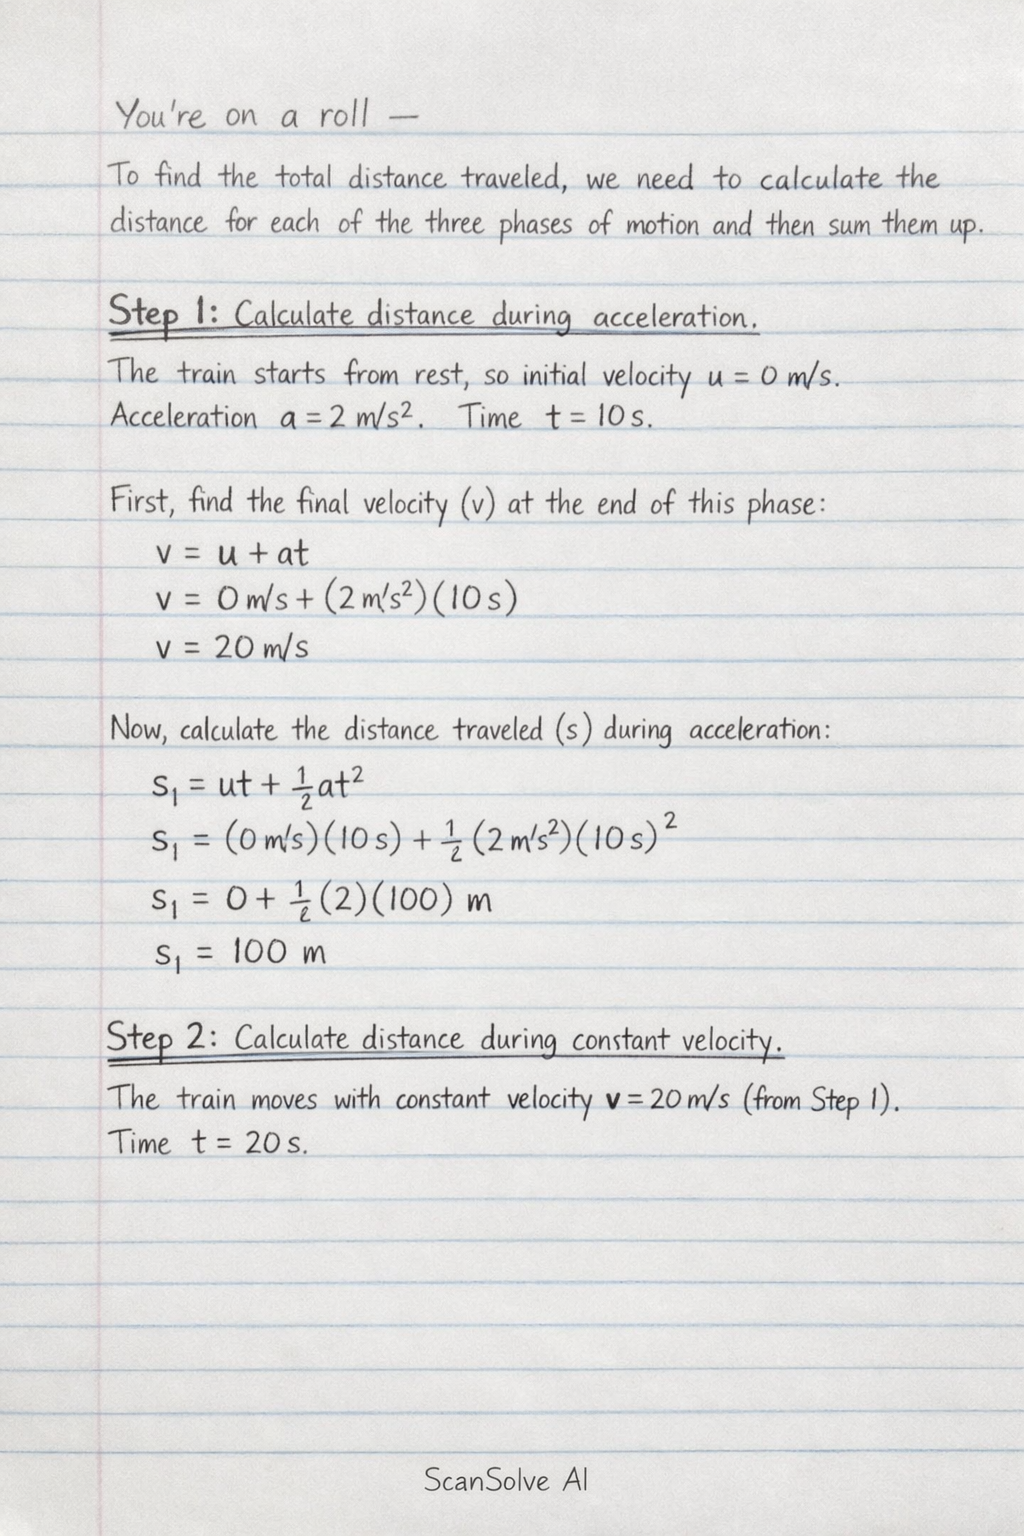 You're on a roll —
To find the total distance traveled, we need to calculate the
distance for each of the three phases of motion and then sum them up.
Step 1: Calculate distance during acceleration.
The train starts from rest, so initial velocity u = 0 m/s.
Acceleration a = 2 m/s². Time t = 10 s.
First, find the final velocity (v) at the end of this phase:
v = u + at
v = 0 m/s + (2 m/s²)(10 s)
v = 20 m/s
Now, calculate the distance traveled (s) during acceleration:
s₁ = ut + ½at²
s₁ = (0 m/s)(10 s) + ½ (2 m/s²)(10 s)²
s₁ = 0 + ½ (2)(100) m
s₁ = 100 m
Step 2: Calculate distance during constant velocity.
The train moves with constant velocity v = 20 m/s (from Step 1).
Time t = 20 s.
ScanSolve AI